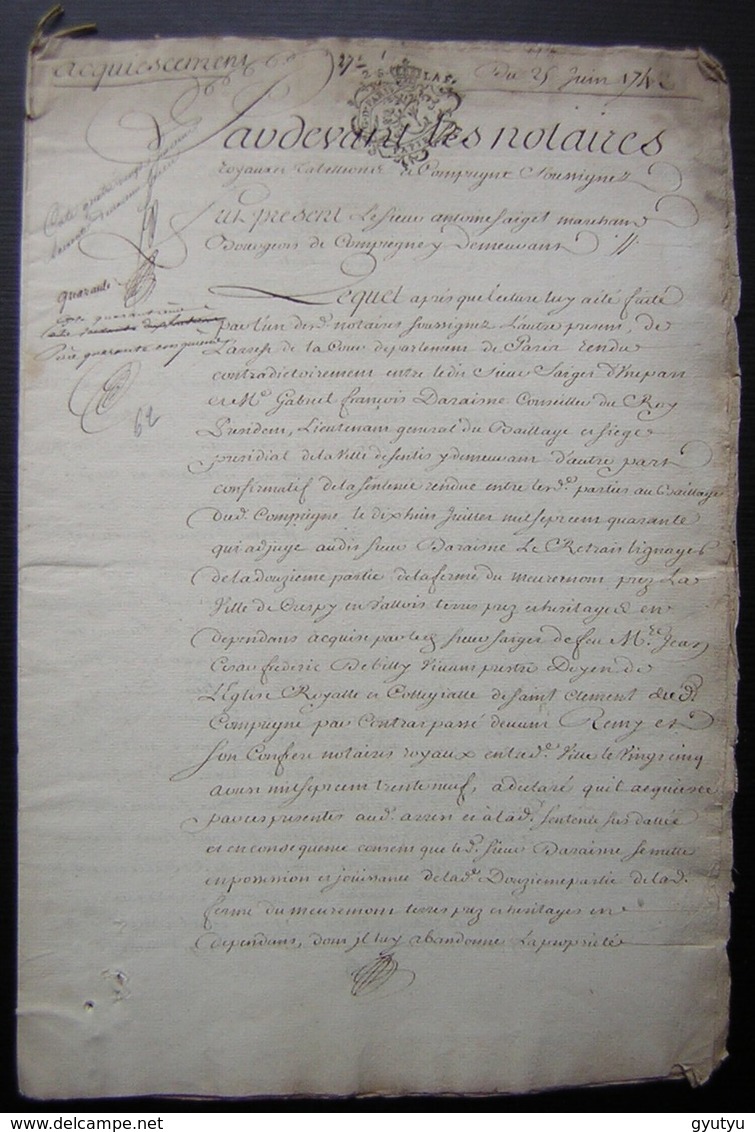 acquiescement
Du 25 Juin 174
G. DE PARIS
Pardevant Les notaires
royaux et Tabellions de Compiegne Soussignez
Fut present Le Sieur antoine Saiget marchand
Bourgeois de Compiegne y demeurant
quarante
Lequel apres que lecture luy a été faite
par l'un des d. notaires soussignez l'autre present, de
L'arrest de la Cour de parlement de Paris rendu
contradictoirement entre le dit Sieur Saiget d'une part
et Mr. Gabriel françois Daraisne Conseiller du Roy
President, Lieutenant general du Baillage et siege
presidial de la Ville de Senlis y demeurant d'autre part
confirmatif de la sentence rendue entre les d. parties au Baillage
du d. Compiegne le dix huit Juillet mil sept cent quarante
qui adjuge audit sieur Daraisne Le Retrait lignager
de la douzieme partie de la ferme du meuremont prez La
Ville de Crespy en Vallois terres prez et heritages en
dependans acquise par led. sieur Saiget de feu Mre. Jean
frederic De billy Vivant prestre Doyen de
L'Eglise Royalle et Collegialle de Saint Clement du d.
Compiegne par Contrat passé devant Remy et
son Confrere notaires royaux en lad. Ville le Vingt cinq
avril mil sept cent trente neuf, a declaré qu'il acquiesce
par ces presentes aud. arrest et a lad. sentence sus dattée
et en consequence consent que le d. sieur Daraisne se mette
en possession et jouissance de lad. Douzieme partie de lad.
ferme du meuremont terres prez et heritages en
dependans, dont il luy abandonne La proprieté
62
gyutyu